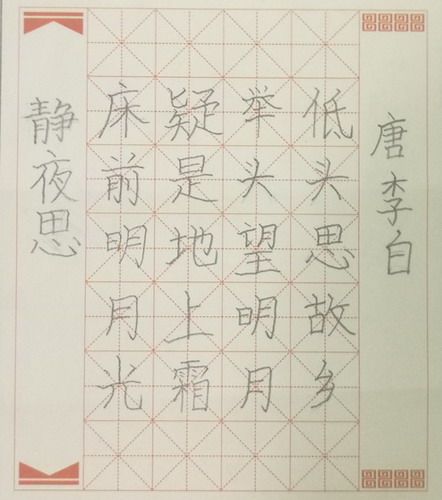 静夜思
床前明月光
疑是地上霜
举头望明月
低头思故乡
唐李白